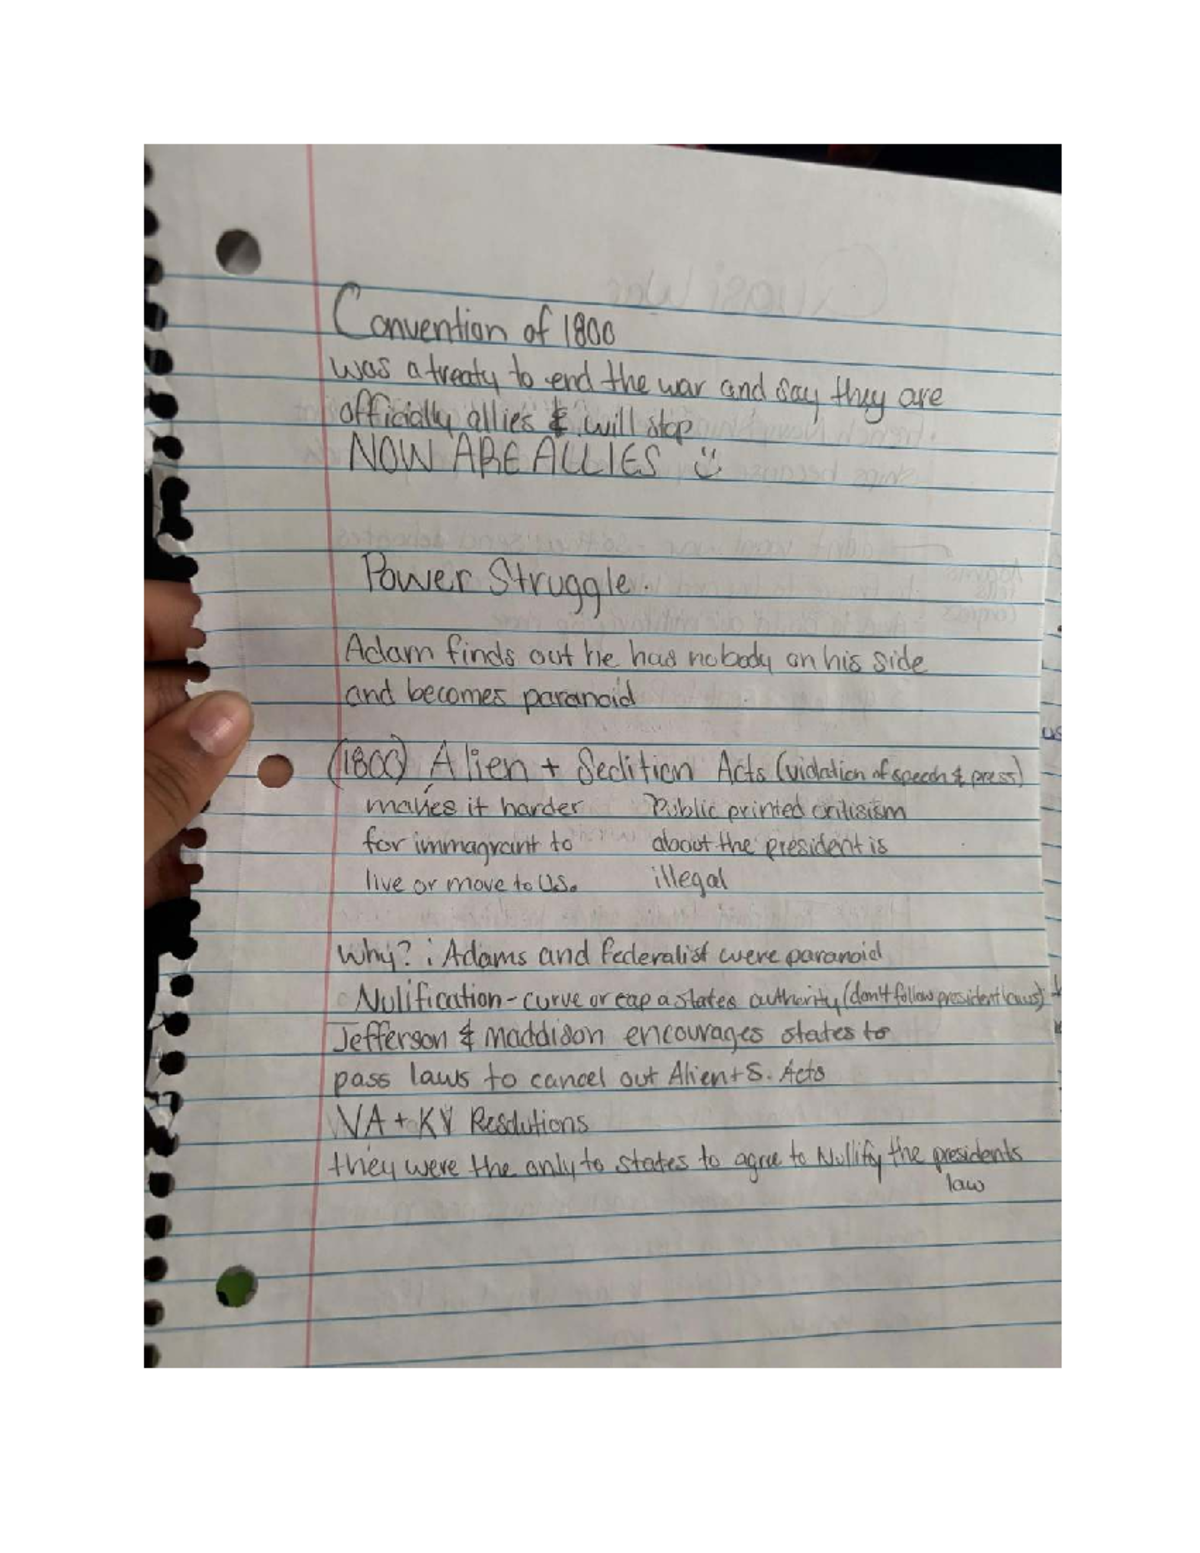 Convention of 1800
was a treaty to end the war and say they are
officially allies & will stop
NOW ARE ALLIES
Power Struggle.
Adam finds out he has nobody on his side
and becomes paranoid
(1800) Alien + Sedition Acts (violation of speech & press)
makes it harder Public printed critisism
for immagrant to about the president is
live or move to US. illegal
Why? : Adams and Federalist were paranoid
Nulification - curve or cap a states authority (don't follow president laws)
Jefferson & Maddison encourages states to
pass laws to cancel out Alien + S. Acts
VA + KY Resolutions
they were the only to states to agree to Nullify the presidents
law